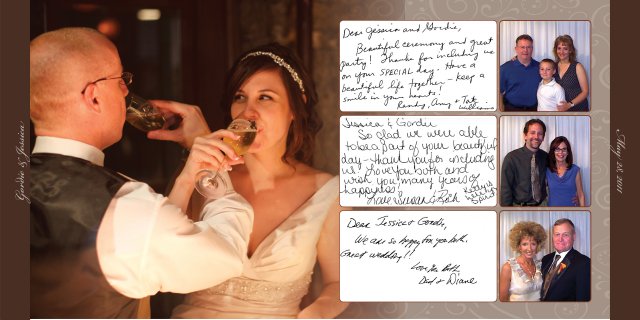 Gordie & Jessica
Dear Jessica and Gordie,
Beautiful ceremony and great
party! Thanks for including us
on your SPECIAL day. Have a
beautiful life together - keep a
smile in your hearts!
Randy, Amy & Tate
Williams
Jessica & Gordie
So glad we were able
to be a part of your beautiful
day - thank you for including
us. Love you both and
wish you many years of
happiness!
Love Susan & Rich
Dear Jessica & Gordie,
We are so happy for you both.
Great wedding!!
Love You Both
Dad & Diane
May 28, 2011